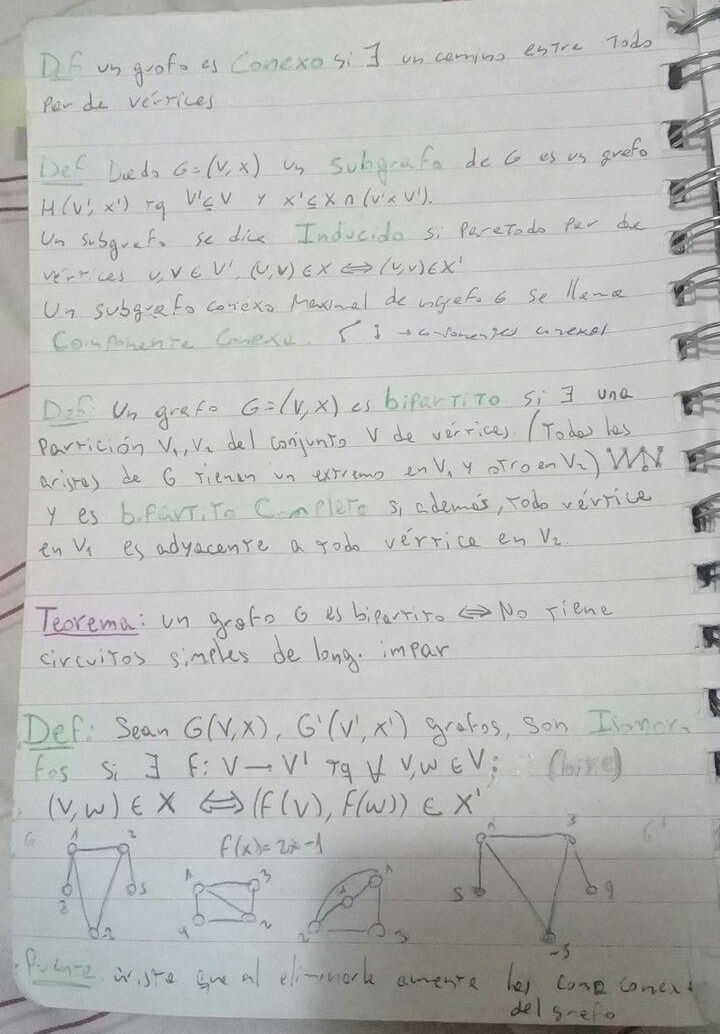 Def un grafo es Conexo si ∃ un camino entre Todo
par de vértices
Def Dado G=(V,X) un subgrafo de G es un grafo
H(V',X') tq V'⊆V y X'⊆X∩(V'×V').
Un subgrafo se dice Inducido si para Todo par de
vértices u,v∈V', (u,v)∈X ⟺ (u,v)∈X'
Un subgrafo conexo Maximal de un grafo G se llama
Componente Conexa. → componentes conexas
Def: Un grafo G=(V,X) es bipartito si ∃ una
Partición V₁,V₂ del conjunto V de vértices. (Todas las
aristas de G tienen un extremo en V₁ y otro en V₂)
y es bipartito Completo si además, todo vértice
en V₁ es adyacente a todo vértice en V₂.
Teorema: un grafo G es bipartito ⟺ No tiene
circuitos simples de long. impar
Def: Sean G(V,X), G'(V',X') grafos, son Isomor-
fos si ∃ f: V → V' tq ∀ v,w ∈ V;
(v,w) ∈ X ⟺ (f(v), f(w)) ∈ X'
G 1 2 f(x)=2x-1 1 3 G'
5 1 3 1 5 9
4 2 2 3
-2 -5
Puente arista que al eliminarla aumenta las comp conexas
del grafo